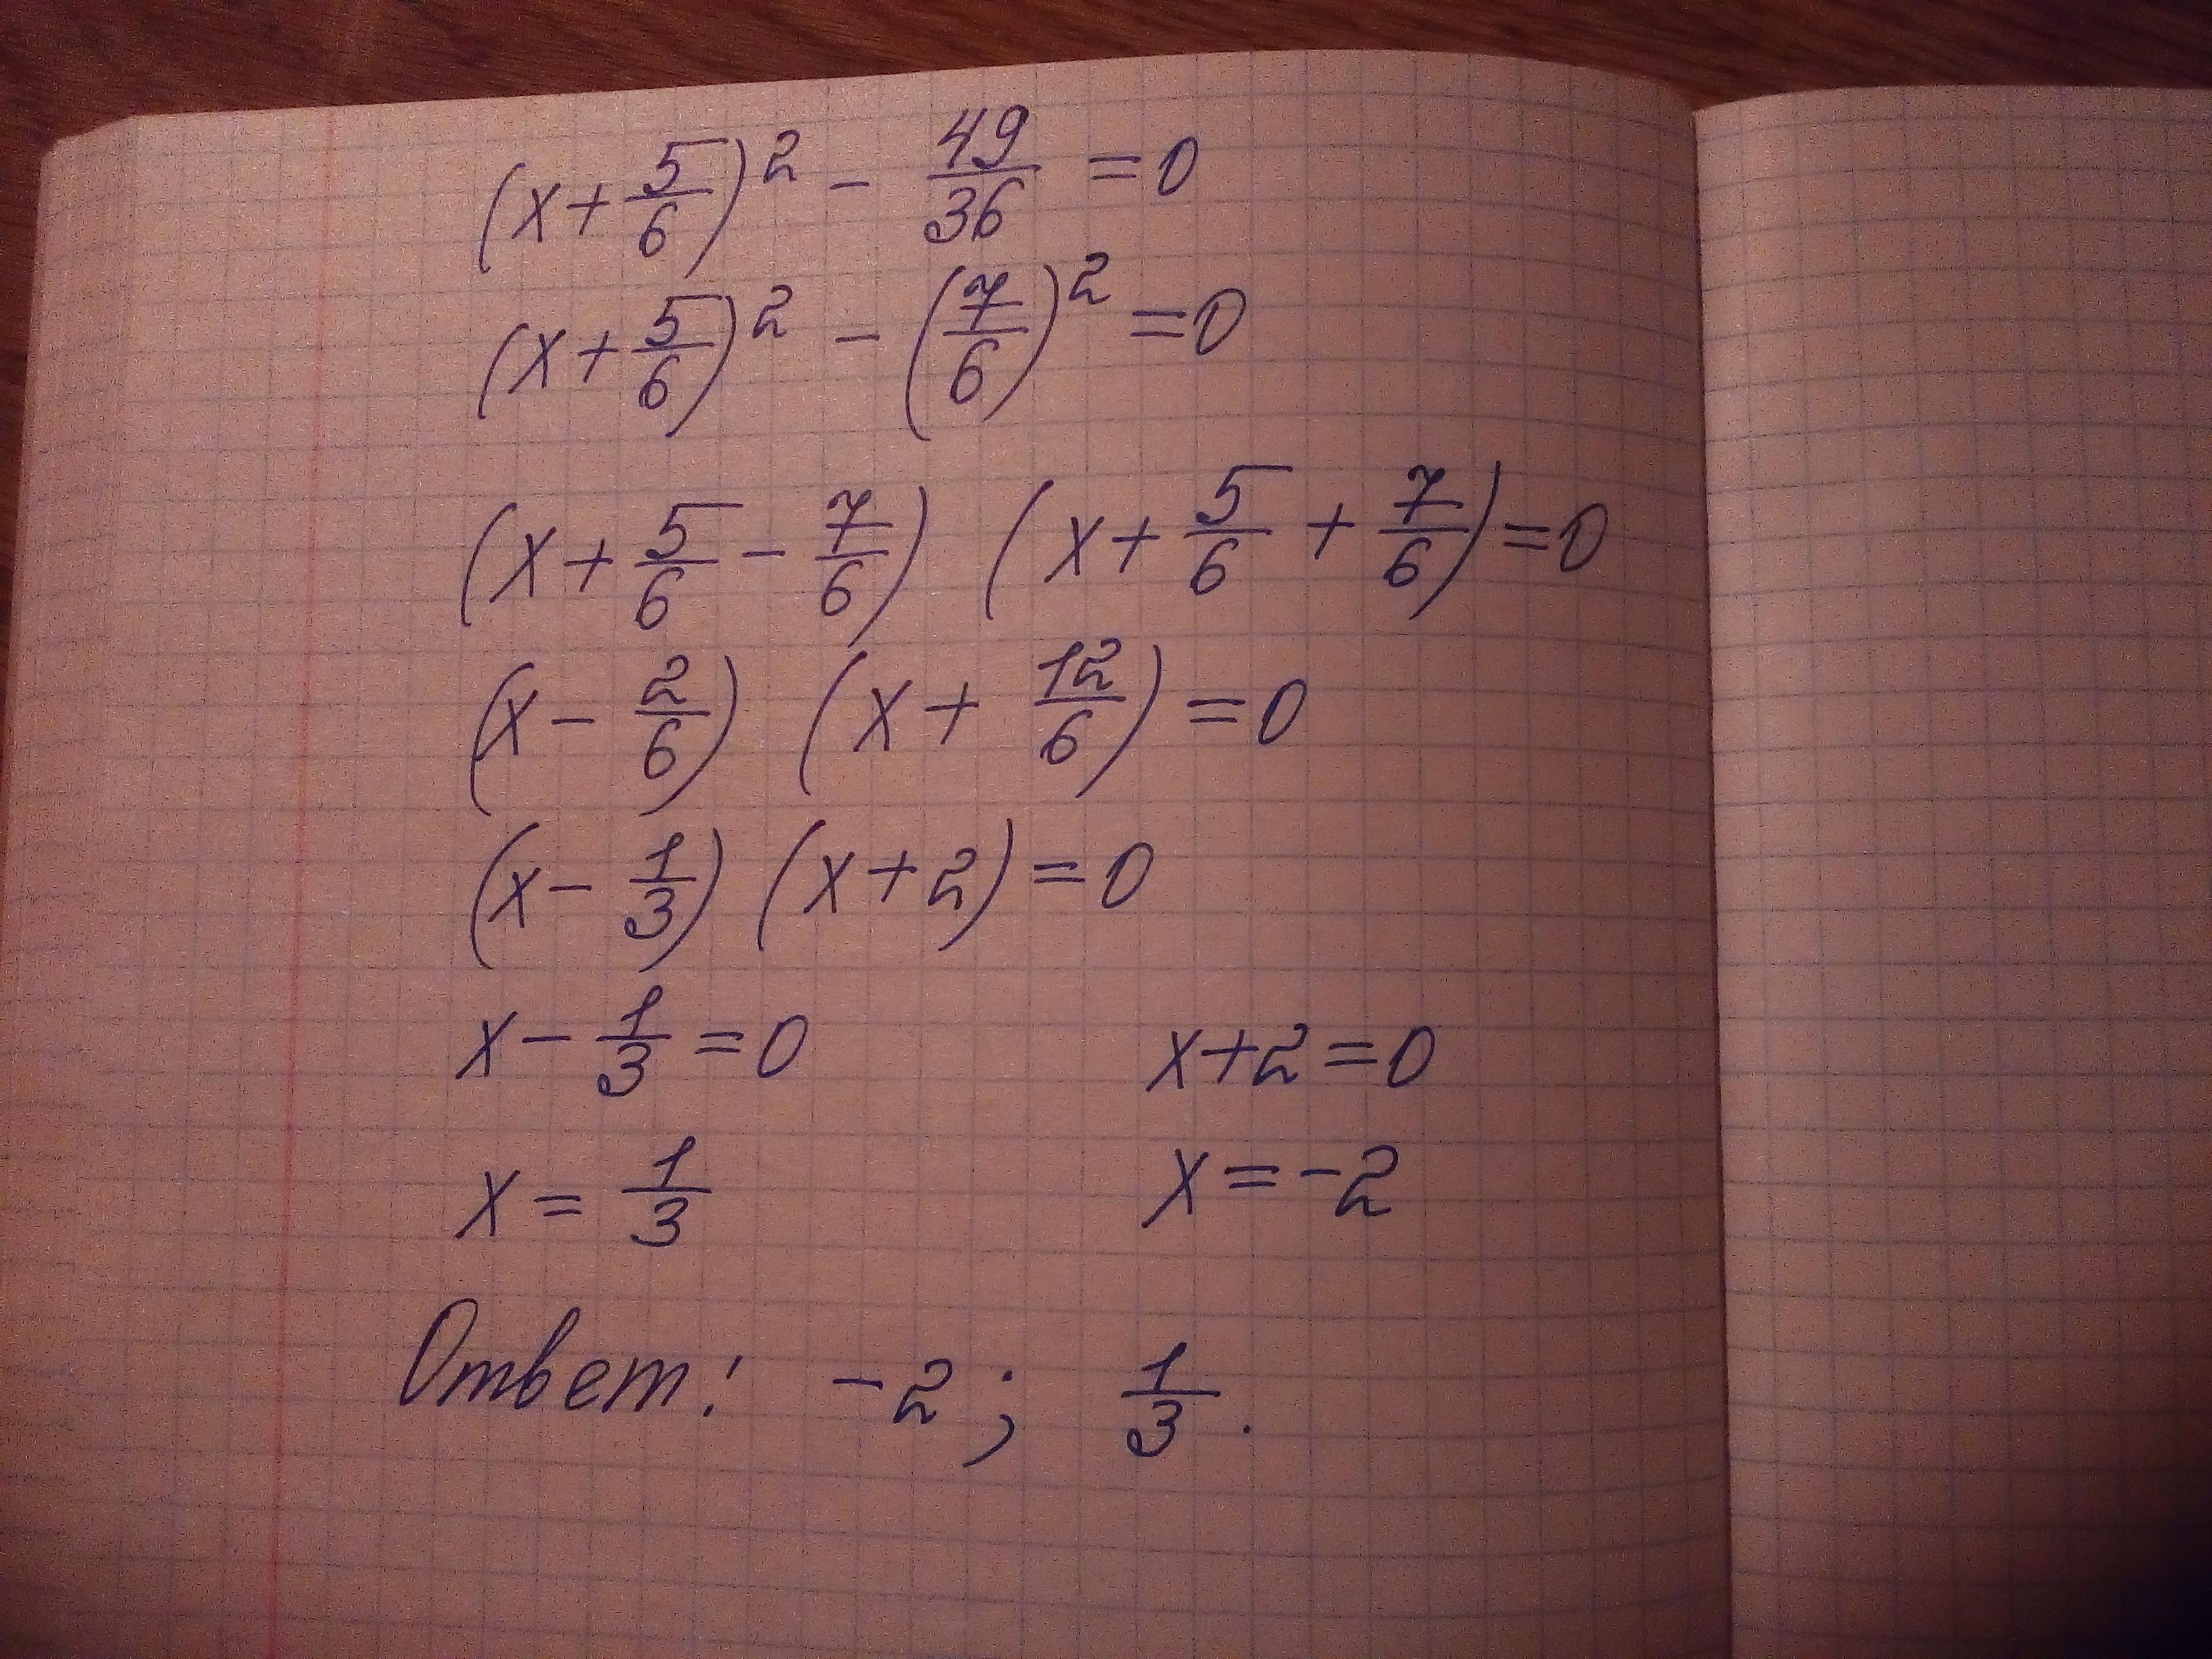 (x+5/6)² - 49/36 =0
(x+5/6)² - (7/6)² =0
(x+5/6-7/6) (x+5/6+7/6)=0
(x-2/6) (x+12/6)=0
(x-1/3) (x+2)=0
x-1/3=0 x+2=0
x=1/3 x=-2
Ответ: -2; 1/3.